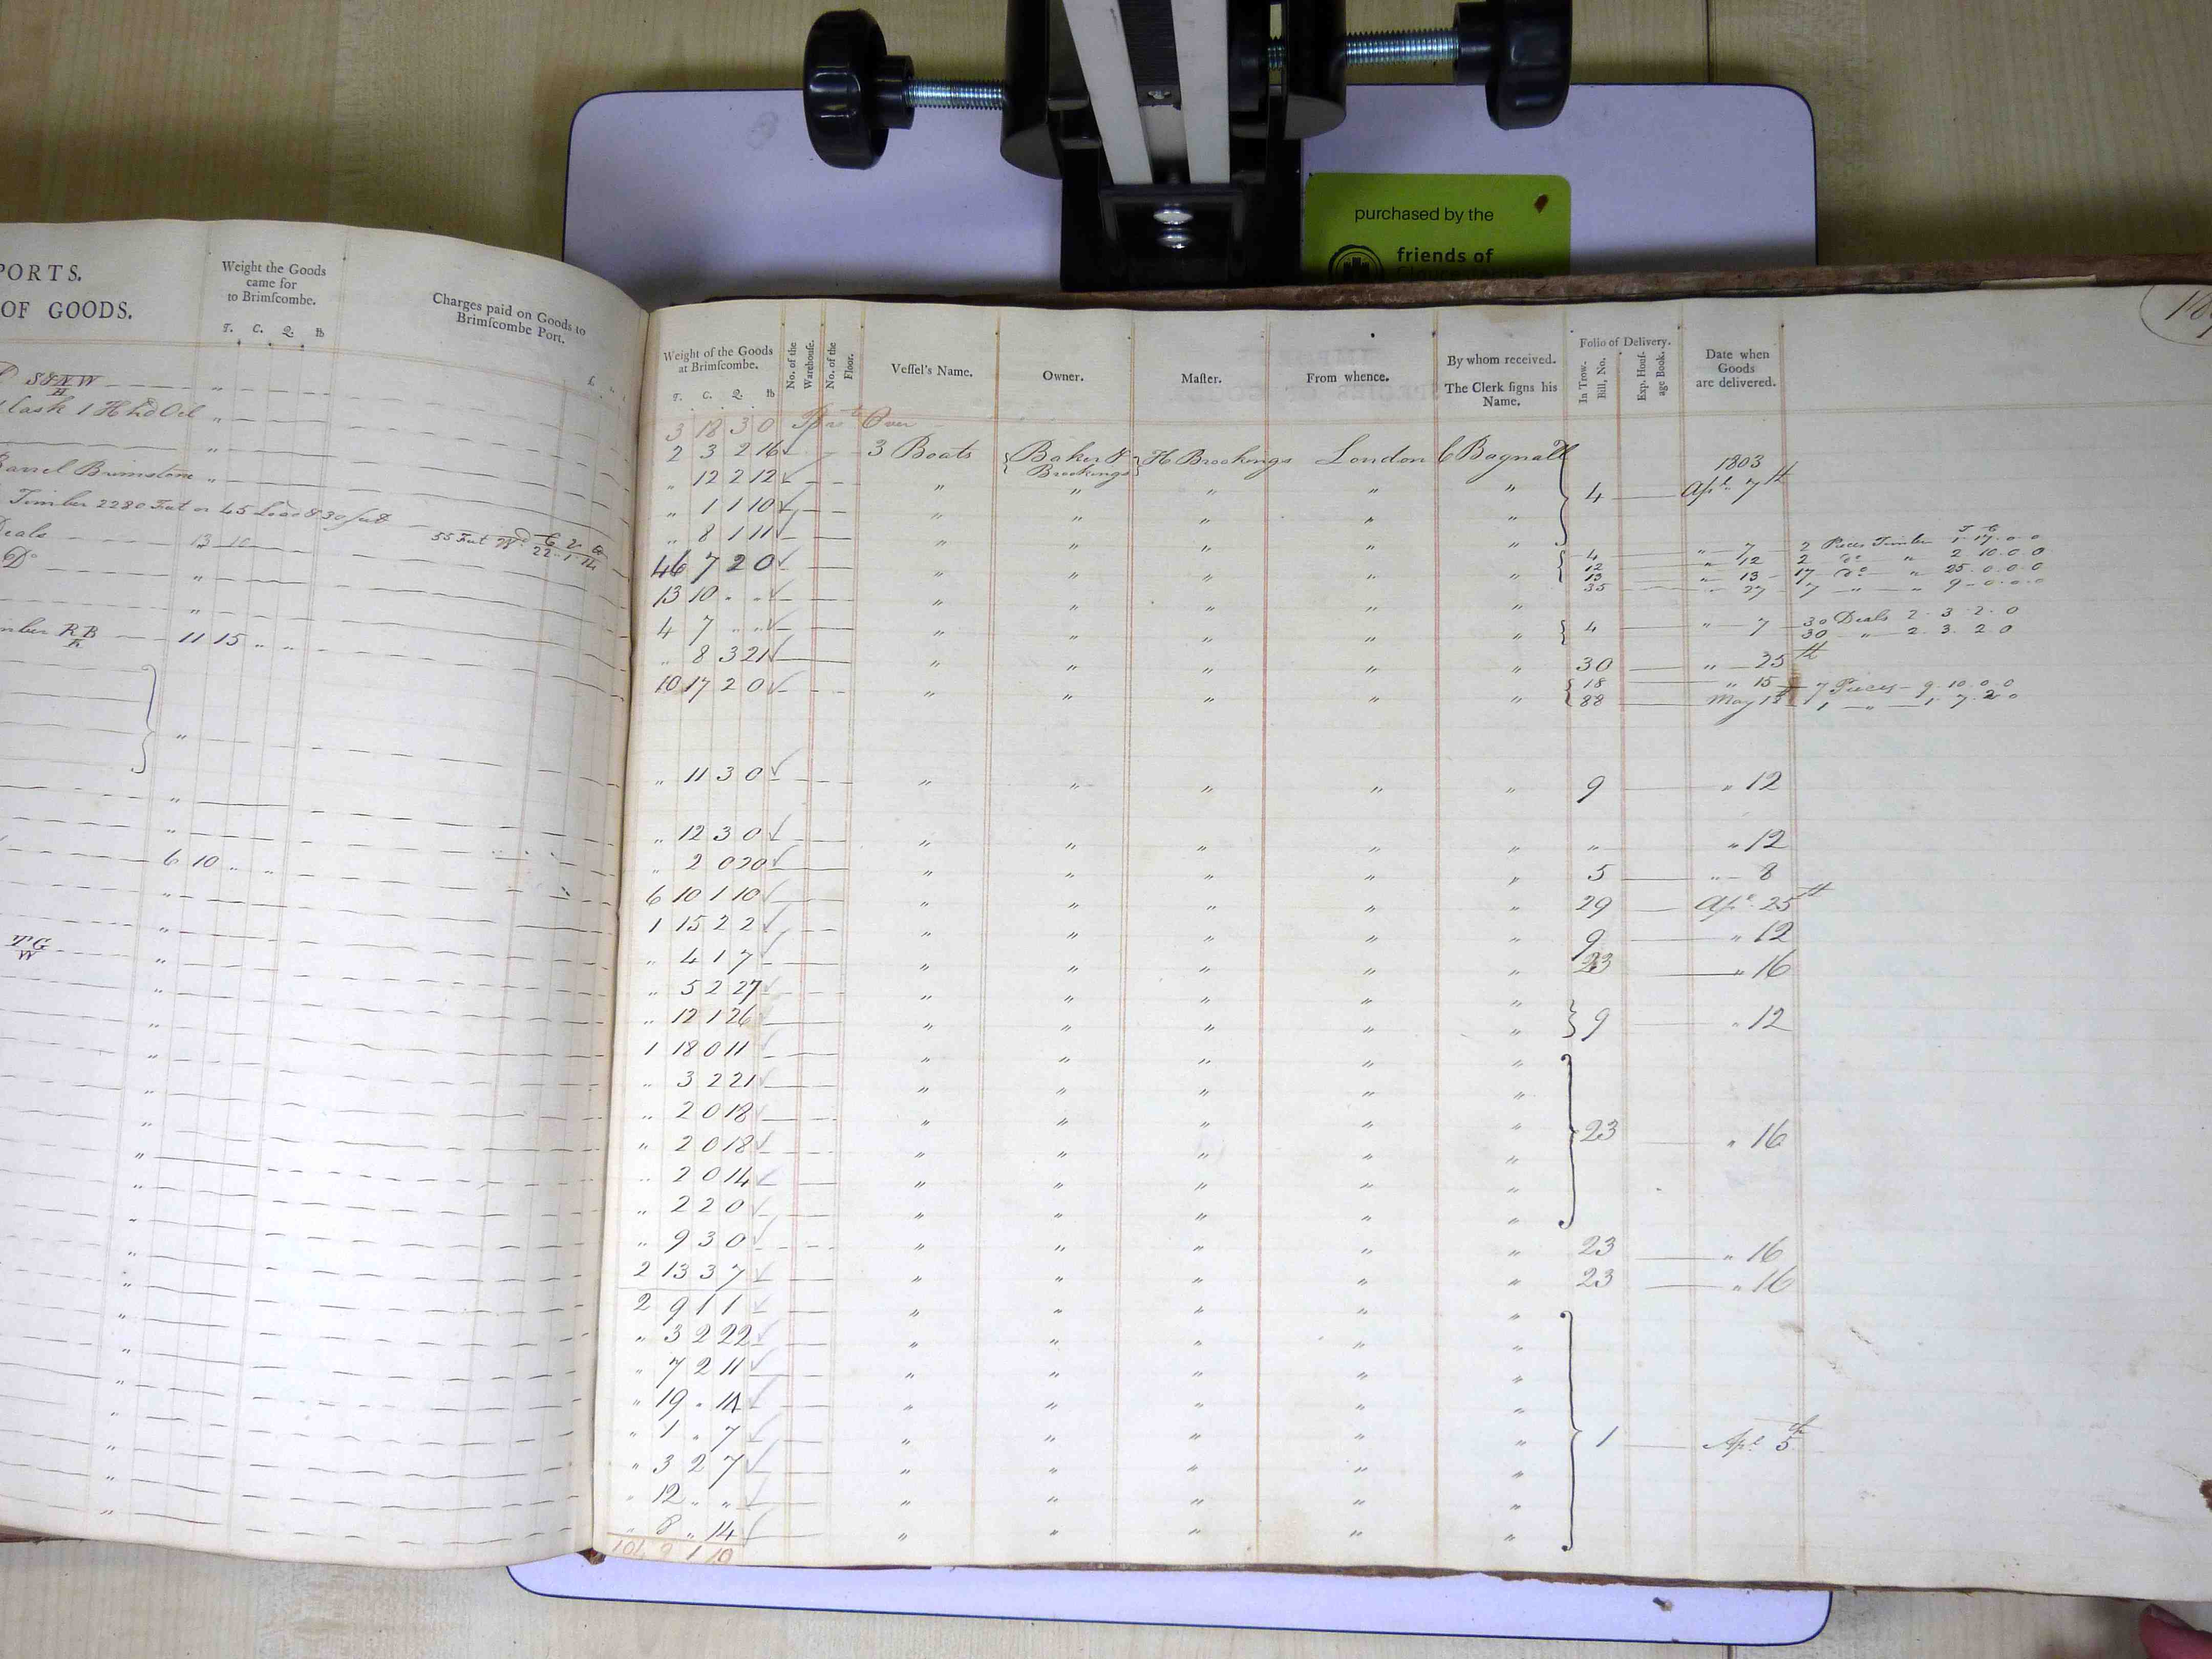 purchased by the
friends of
PORTS.
OF GOODS.
Weight the Goods
came for
to Brimſcombe.
T. C. Q. lb
Charges paid on Goods to
Brimſcombe Port.
Cask 1 Hhd Oil "
Barrel Brimstone "
Timber 2280 Feet or 45 Load & 30 feet
Deals 13 10
Do "
"
RB 11 15 " "
"
"
"
6 10 " "
"
TG
W
Weight of the Goods
at Brimſcombe.
T. C. Q. lb
No. of the
Warehouſe.
No. of the
Floor.
Veſſel's Name.
Owner.
Maſter.
From whence.
By whom received.
The Clerk ſigns his
Name.
Folio of Delivery.
In Trow-
Bill, No.
Exp. Honſ-
age Book.
Date when
Goods
are delivered.
3 18 3 0 Over
2 3 2 16 3 Boats Baker & Brookings H Brookings London C Bagnall
1803
" 12 2 12 " " " " " 4 Apl. 7th
" 1 1 10 " " " " "
" 8 1 11 " " " " "
46 7 2 0 " " " " " 4 " 7 2 Pieces Timber 1 17 0 0
12 " 12 2 do " 2 10 0 0
13 " 13 17 do " 25 0 0 0
35 " 27 7 " " 9 0 0 0
13 10 " " " " " " "
4 7 " " " " " " " 4 " 7 30 Deals 2 3 2 0
30 " 2 3 2 0
" 8 3 21 " " " " " 30 " 25th
10 17 2 0 " " " " " 18 " 15 7 Pieces 9 10 0 0
88 May 13 1 " 1 7 2 0
" 11 3 0 " " " " " 9 " 12
" 12 3 0 " " " " " " " 12
" 2 0 20 " " " " " 5 " 8
6 10 1 10 " " " " " 29 Apl. 25th
1 15 2 2 " " " " " 9 " 12
" 4 1 7 " " " " " 23 " 16
" 5 2 27 " " " " "
" 12 1 26 " " " " " 9 " 12
1 18 0 11 " " " " "
" 3 2 21 " " " " "
" 2 0 18 " " " " " 23 " 16
" 2 0 18 " " " " "
" 2 0 14 " " " " "
" 2 2 0 " " " " "
" 9 3 0 " " " " " 23 " 16
2 13 3 7 " " " " " 23 " 16
2 9 1 1 " " " " "
" 3 2 22 " " " " "
" 7 2 11 " " " " "
" 19 " 14 " " " " "
" 1 " 7 " " " " " 1 Apl. 5th
" 3 2 7 " " " " "
" 12 " " " " " " "
" 8 " 14 " " " " "
106 9 1 10